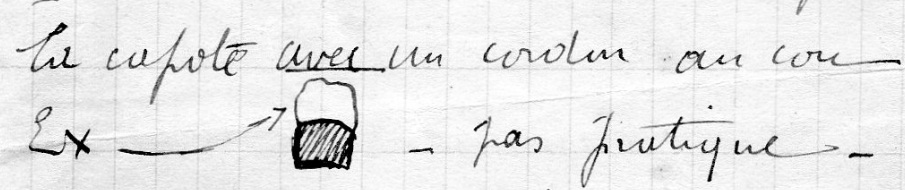 la capote avec un cordon au cou
Ex — pas pratique -